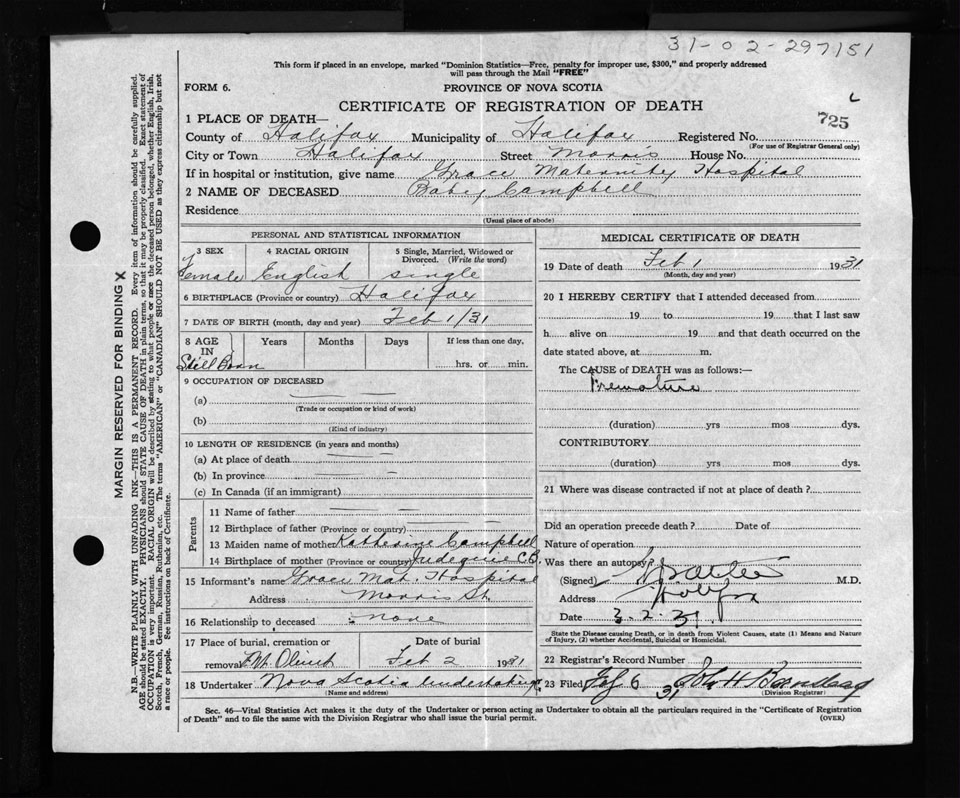 31-02-297151
This form if placed in an envelope, marked "Dominion Statistics—Free, penalty for improper use, $300," and properly addressed
will pass through the Mail "FREE"
FORM 6. PROVINCE OF NOVA SCOTIA
CERTIFICATE OF REGISTRATION OF DEATH
725
1 PLACE OF DEATH—
County of Halifax Municipality of Halifax Registered No.
(For use of Registrar General only)
City or Town Halifax Street Morris House No.
If in hospital or institution, give name Grace Maternity Hospital
2 NAME OF DECEASED Baby Campbell
Residence
(Usual place of abode)
PERSONAL AND STATISTICAL INFORMATION
3 SEX 4 RACIAL ORIGIN 5 Single, Married, Widowed or Divorced. (Write the word)
Female English single
6 BIRTHPLACE (Province or country) Halifax
7 DATE OF BIRTH (month, day and year) Feb 1/31
8 AGE IN Years Months Days If less than one day,
Still Born hrs. or min.
9 OCCUPATION OF DECEASED
(a)
(Trade or occupation or kind of work)
(b)
(Kind of industry)
10 LENGTH OF RESIDENCE (in years and months)
(a) At place of death
(b) In province
(c) In Canada (if an immigrant)
Parents
11 Name of father
12 Birthplace of father (Province or country)
13 Maiden name of mother Katherine Campbell
14 Birthplace of mother (Province or country) C.B.
15 Informant's name Grace Mat. Hospital
Address Morris St.
16 Relationship to deceased none
17 Place of burial, cremation or Date of burial
removal Mt. Olivet Feb 2 1931
18 Undertaker Nova Scotia Undertaking
(Name and address)
MEDICAL CERTIFICATE OF DEATH
19 Date of death Feb 1 1931
(Month, day and year)
20 I HEREBY CERTIFY that I attended deceased from
19 to 19 that I last saw
h alive on 19 and that death occurred on the
date stated above, at m.
The CAUSE of DEATH was as follows:—
Premature
(duration) yrs mos dys.
CONTRIBUTORY
(duration) yrs mos dys.
21 Where was disease contracted if not at place of death?
Did an operation precede death? Date of
Nature of operation
Was there an autopsy?
(Signed) M.D.
Address Halifax
Date 3.2.31
State the Disease causing Death, or in death from Violent Causes, state (1) Means and Nature
of Injury, (2) whether Accidental, Suicidal or Homicidal.
22 Registrar's Record Number
23 Filed 6 31 John H
(Division Registrar)
Sec. 46—Vital Statistics Act makes it the duty of the Undertaker or person acting as Undertaker to obtain all the particulars required in the "Certificate of Registration
of Death" and to file the same with the Division Registrar who shall issue the burial permit. (OVER)
MARGIN RESERVED FOR BINDING X
N.B.—WRITE PLAINLY WITH UNFADING INK—THIS IS A PERMANENT RECORD. Every item of information should be carefully supplied.
AGE should be stated EXACTLY. PHYSICIANS should STATE CAUSE OF DEATH in plain terms, so that it may be properly classified. Exact statement of
OCCUPATION is very important. RACIAL ORIGIN will be described by stating to what people or race the deceased person belonged, whether English, Irish,
Scotch, French, German, Russian, Ruthenian, etc. The terms "AMERICAN" or "CANADIAN" SHOULD NOT BE USED as they express citizenship but not
a race or people. See instructions on back of Certificate.